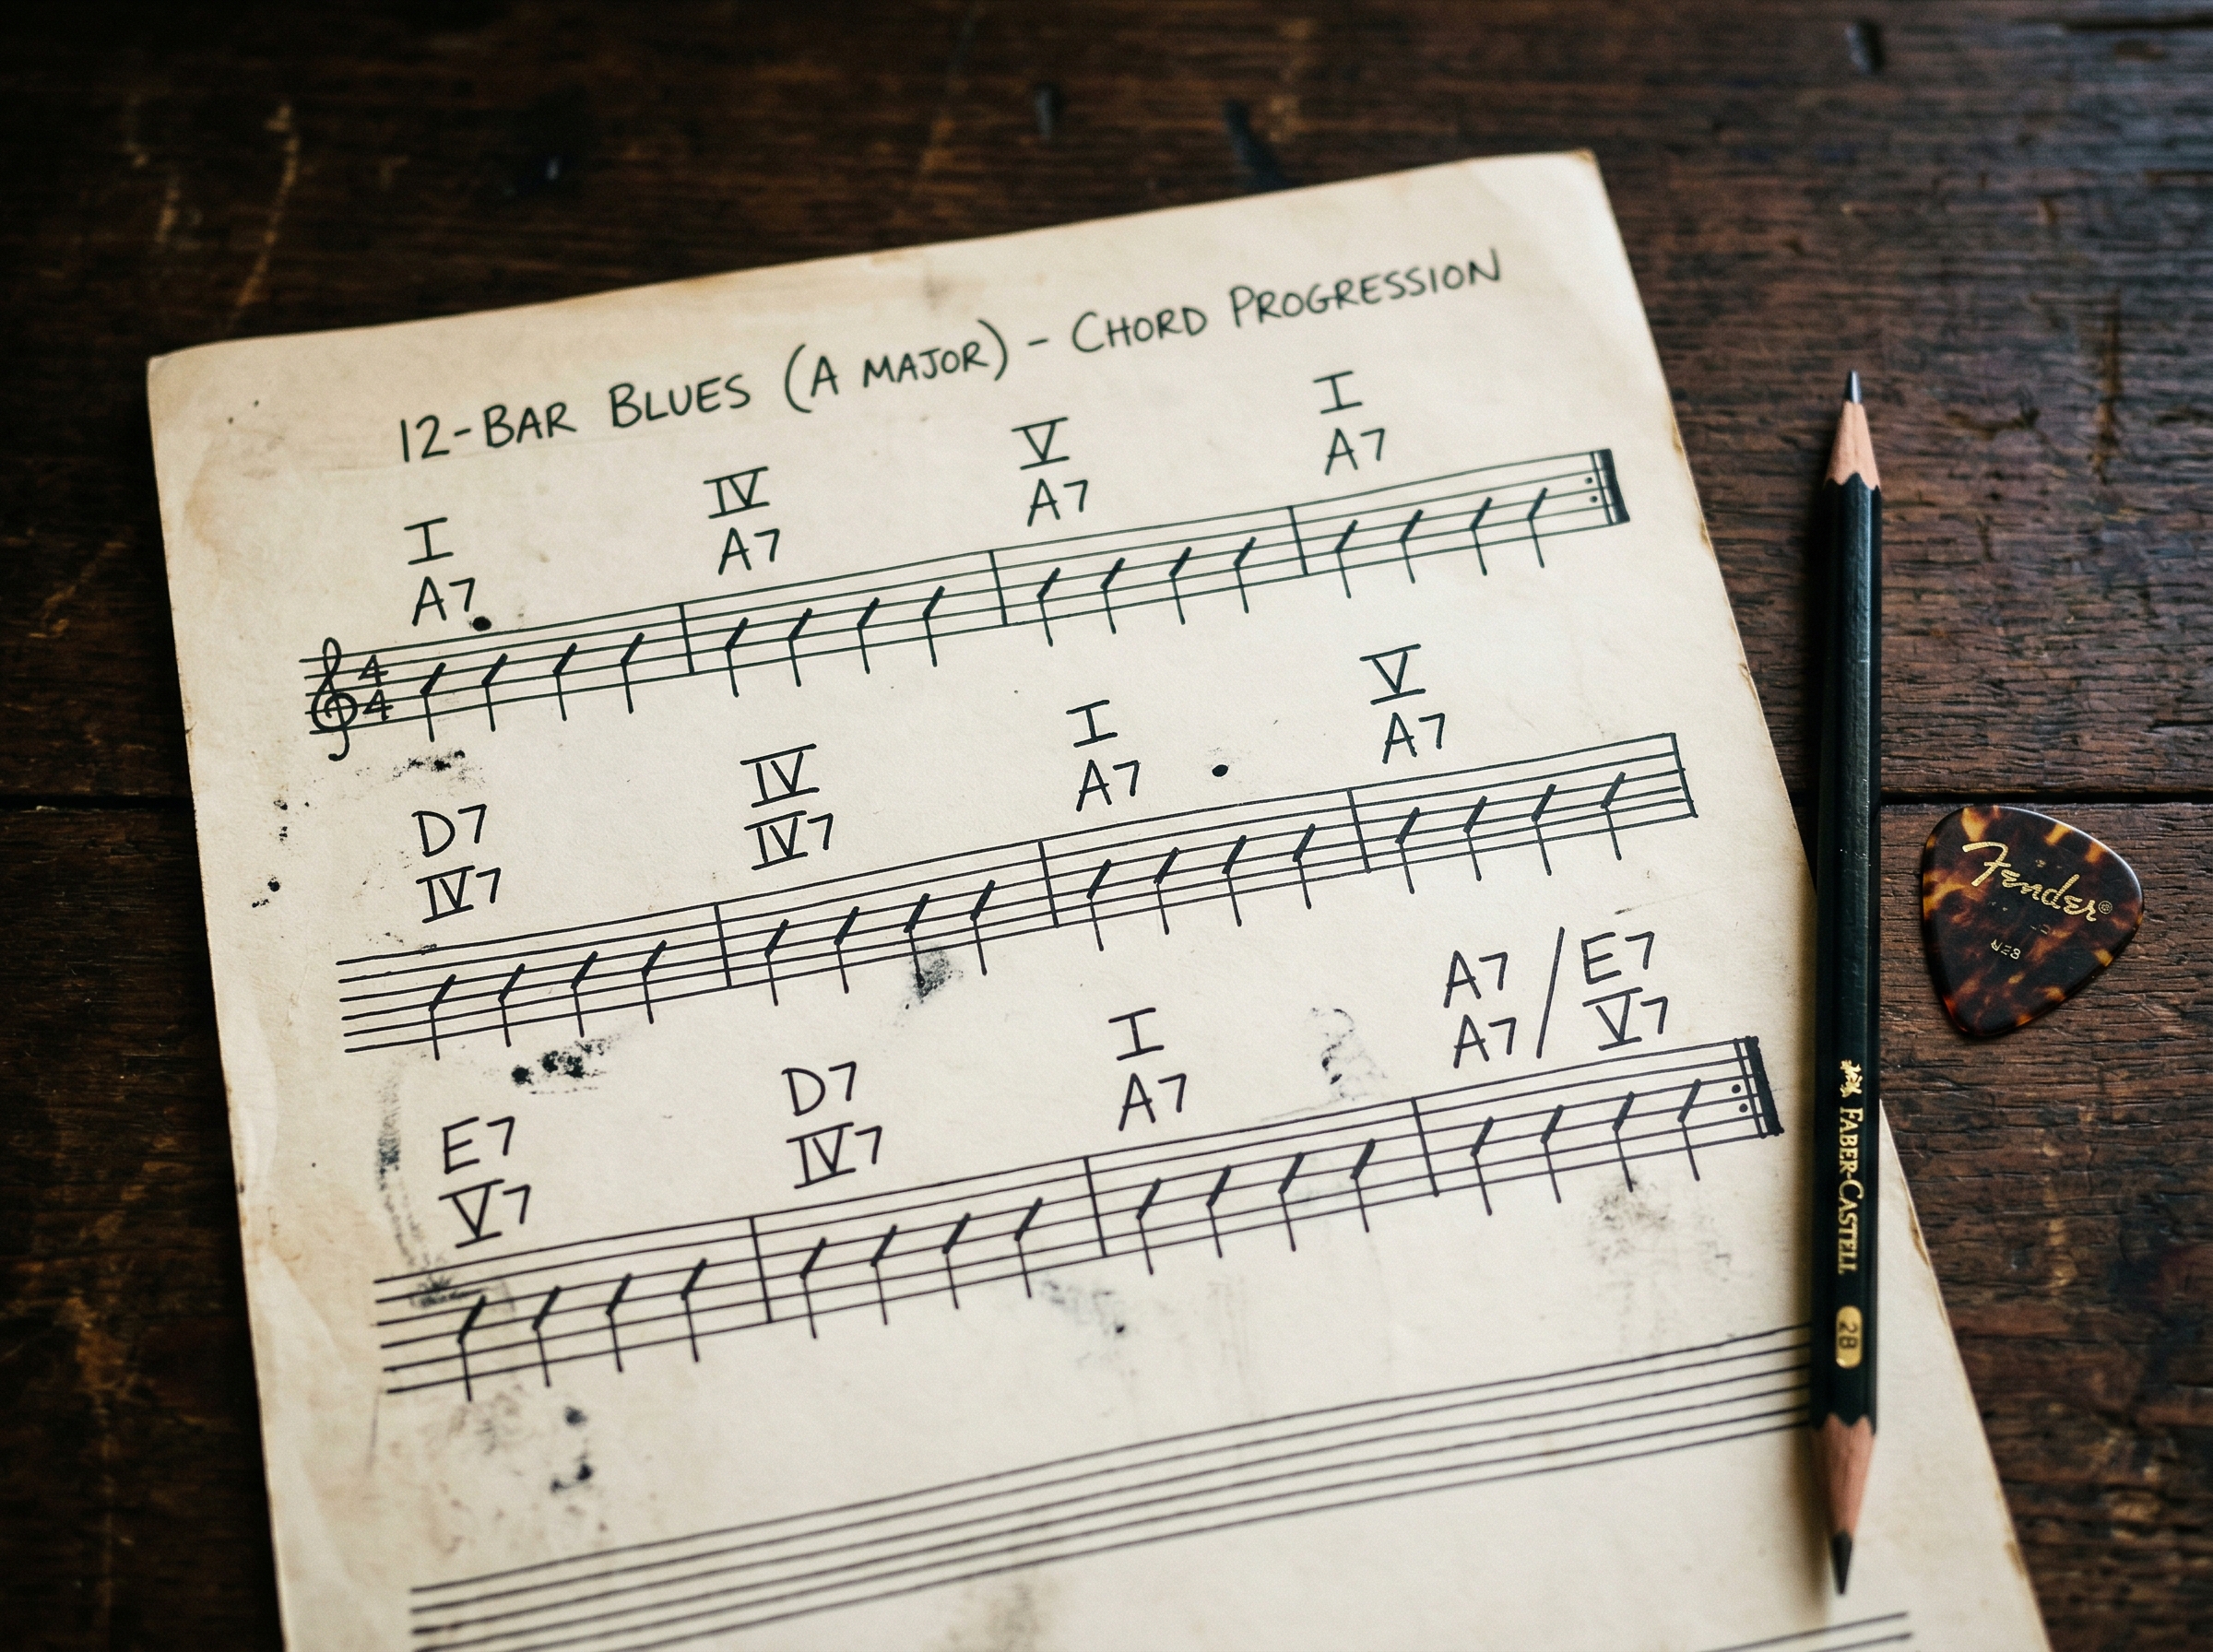 12-BAR BLUES (A MAJOR) - CHORD PROGRESSION
I IV V I
A7 A7 A7 A7
4
4
D7 IV I V
IV7 IV7 A7 A7
E7 D7 I A7 / E7
V7 IV7 A7 A7 / V7
FABER-CASTELL 2B
Fender®